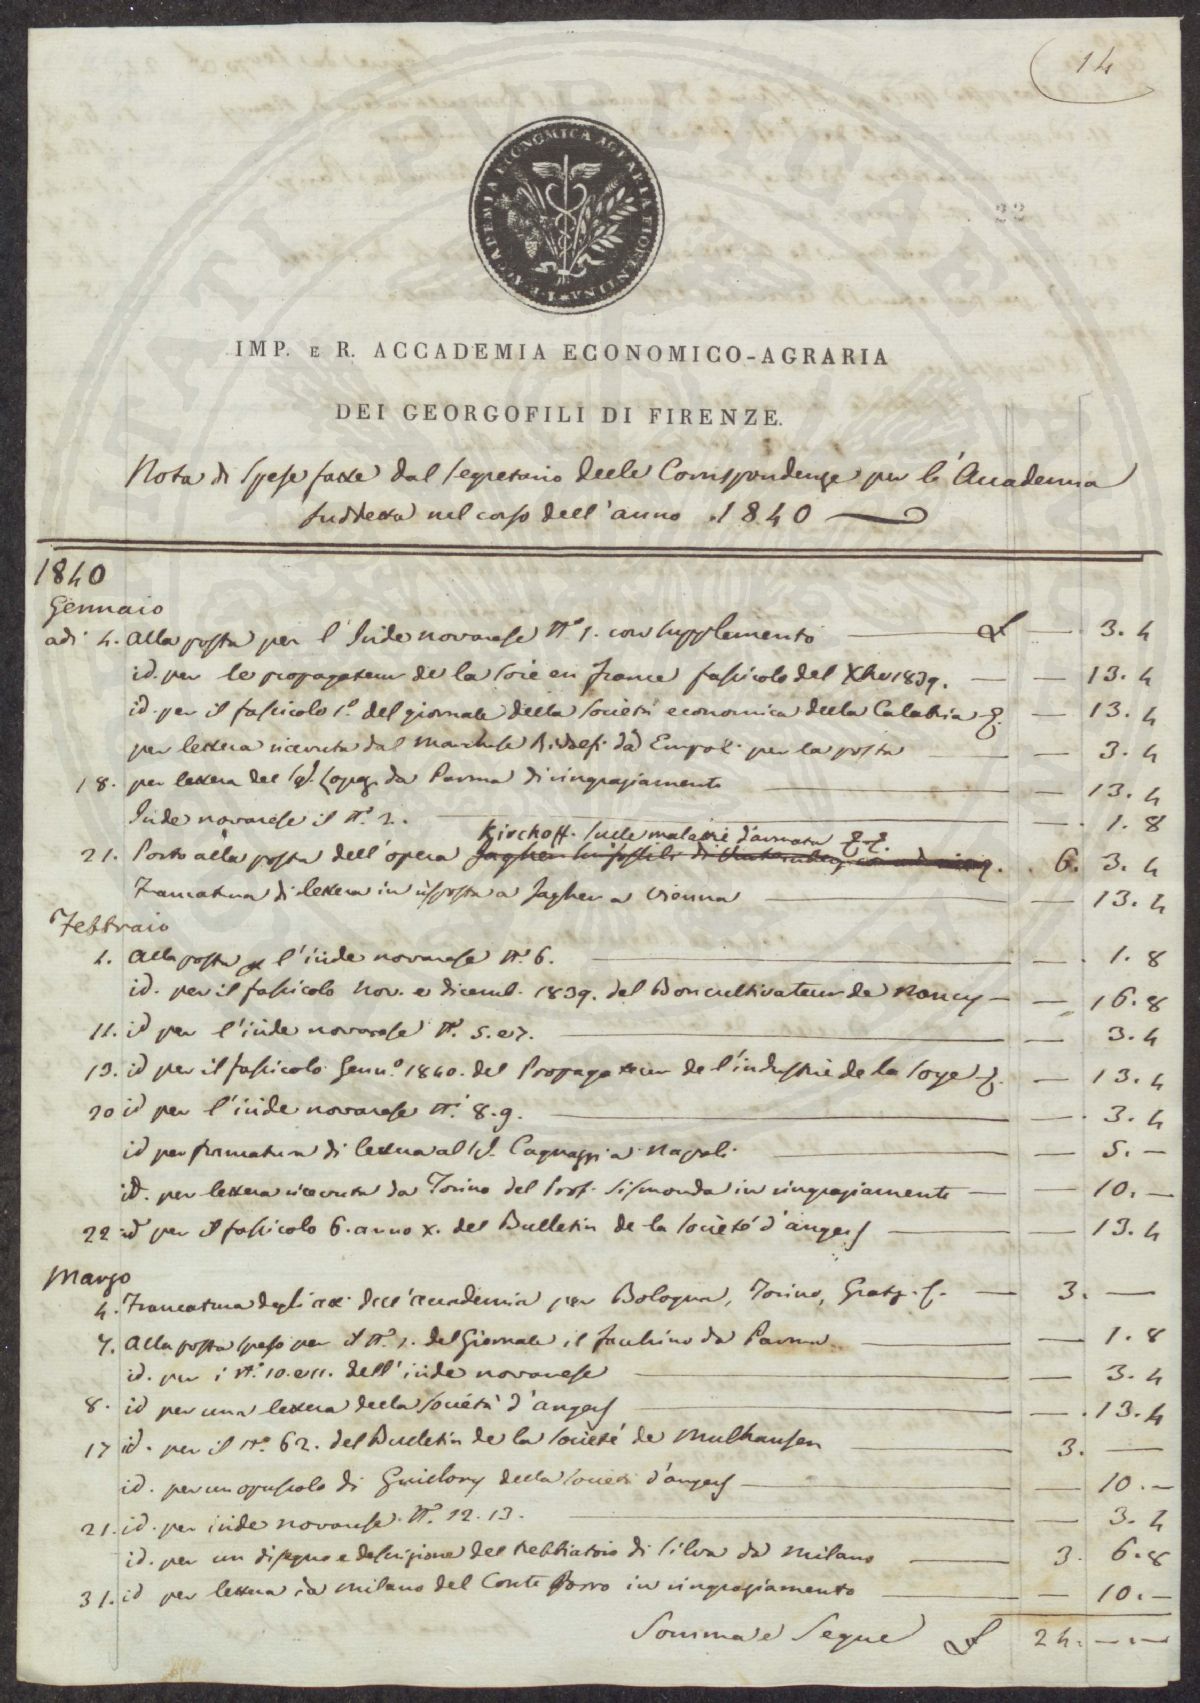 14
I. E R. ACCADEMIA ECONOMICA AGRARIA FIORENTINA
22
IMP. E R. ACCADEMIA ECONOMICO-AGRARIA
DEI GEORGOFILI DI FIRENZE.
Nota di Spese fatte dal Segretario delle Corrispondenze per l'Accademia
suddetta nel corso dell'anno 1840
1840
Gennaio
adi 4. alla posta per l'Iride novarese N.° 1. con supplemento £ — 3. 4
id. per le propagateur de la soie en France fascicolo del Xbre 1839. — 13. 4
id. per il fascicolo 1.° del giornale della Società economica della Calabria — 13. 4
per lettera ricevuta dal Marchese Ridolfi da Empoli per la posta — 3. 4
18. per lettera del da Parma di ringraziamento — 13. 4
Iride novarese il N.° 2. — 1. 8
Kirchoff. sulle malattie d'armata
21. Porto alla posta dell'opera 6. 3. 4
Francatura di lettera in risposta a Jagher a Vienna — 13. 4
Febbraio
4. alla posta per l'iride novarese N.° 6. — 1. 8
id. per il fascicolo Nov. e dicemb. 1839. del Boncultivateur de Nancy — 16. 8
11. id per l'iride novarese N.° 5. e 7. — 3. 4
13. id per il fascicolo Genn.° 1840. del Propagateur de l'industrie de la soye — 13. 4
20 id per l'iride novarese N.° 8. 9. — 3. 4
id per francatura di lettera al Cagnazzi a Napoli — 5. —
id. per lettera ricevuta da Torino del Prof. Sismonda in ringraziamento — 10. —
22 id per il fascicolo 6. anno X. del Bulletin de la Société d'angers — 13. 4
Marzo
4. Francatura degli atti dell'accademia per Bologna, Torino, Gratz. 3. —
7. alla posta speso per il N.° 1. del Giornale il facchino da Parma — 1. 8
id. per i N.° 10. e 11. dell'iride novarese — 3. 4
8. id per una lettera della Società d'angers — 13. 4
17 id. per il N.° 62. del Bulletin de la Société de Mulhausen 3. —
id. per un opuscolo di Guillory della Società d'angers — 10. —
21. id. per iride novarese N.° 12. 13. — 3. 4
id. per un disegno e descrizione del trebbiatoio di Silva da Milano 3. 6. 8
31. id per lettera da Milano del Conte Porro in ringraziamento — 10. —
Somma e Segue £ 24. — . —